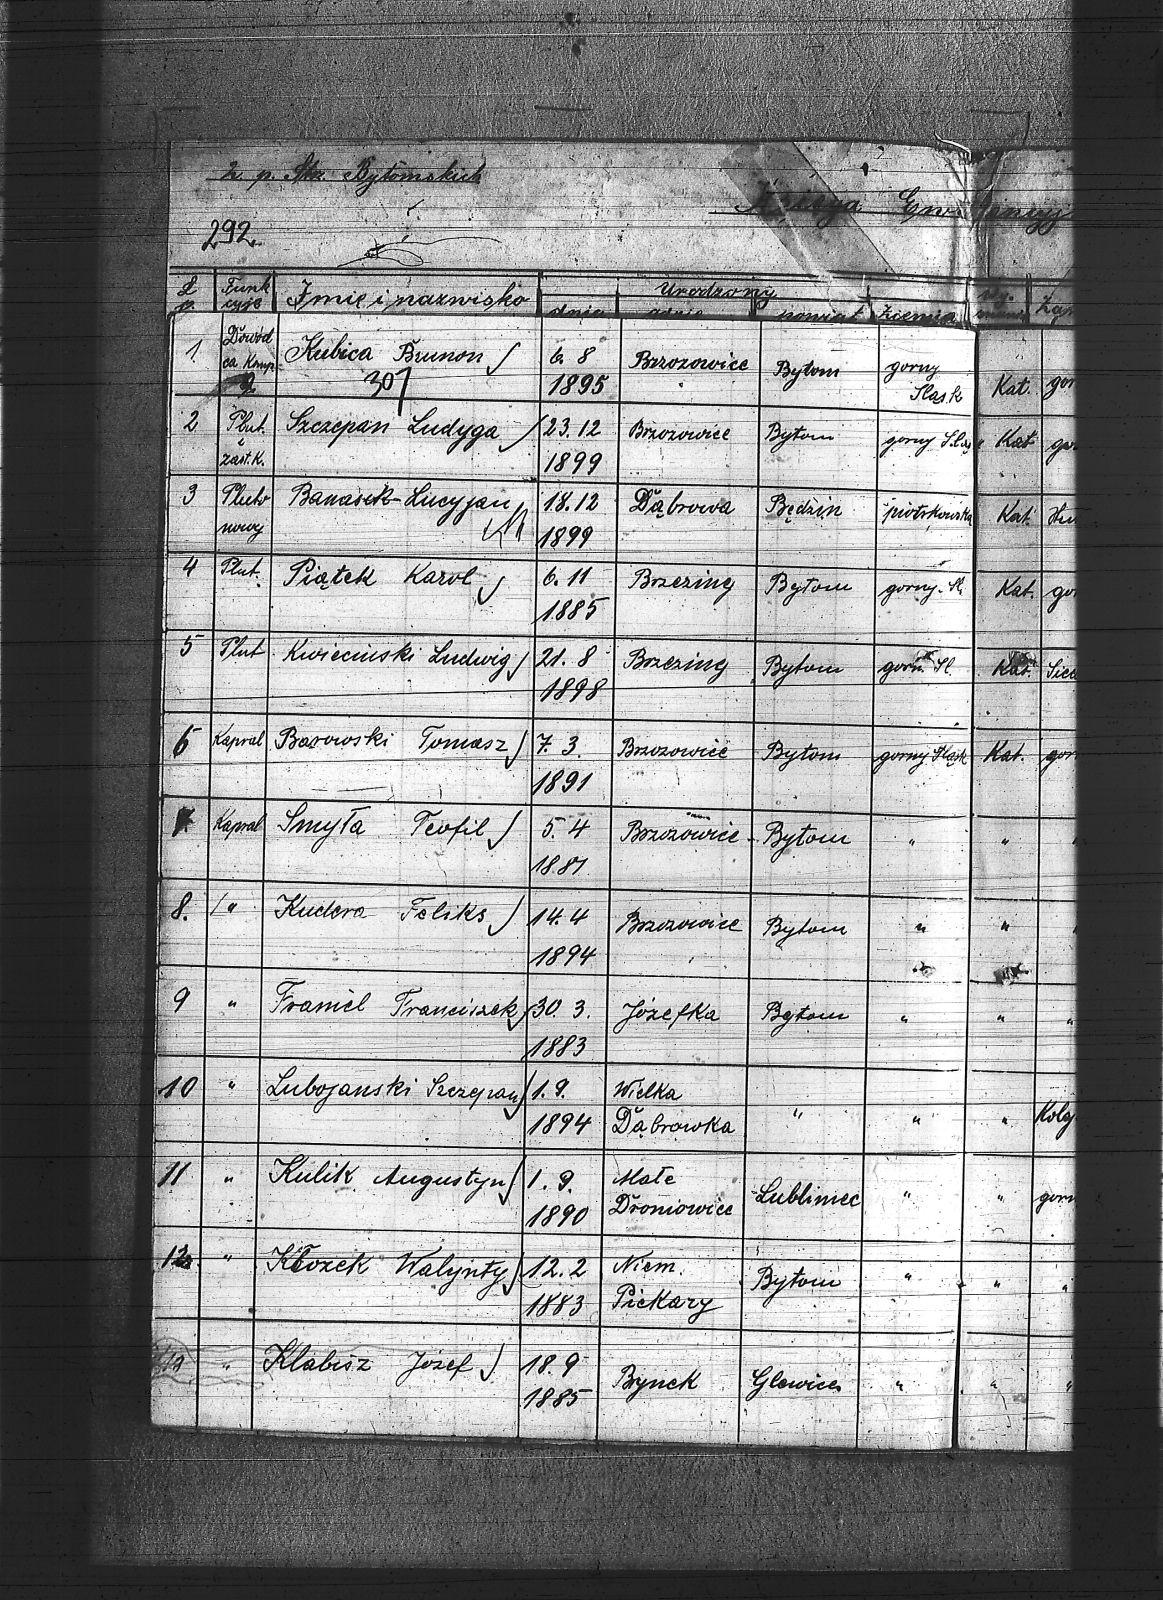 2 p. Strz. Bytomskich
Księga Ewidencyj
292.
L. p. Funkcyje Imię i nazwisko Urodzony
dnia powiat ziemia
1 Dowódca Komp. Kubica Brunon 6. 8 1895 Brzozowice Bytom gorny Slask Kat. gor
307
2 Plut. i zast. K. Szczepan Ludyga 23. 12 1899 Brzozowice Bytom gorny Slas Kat gor
3 Plutonowy Banasek Lucyjan 18. 12 1899 Dąbrowa Będzin piotrkowska Kat. Hu
4 Plut. Piątek Karol 6. 11 1885 Brzeziny Bytom gorny Sl. Kat. gor
5 Plut Kwieciński Ludwig 21. 8 1898 Brzeziny Bytom gorn. Sl. Kat. Siec
6 Kapral Borowski Tomasz 7. 3. 1891 Brzozowice Bytom gorny Sląsk Kat. gor
7 Kapral Smyła Teofil 5. 4 1881 Brzozowice Bytom " "
8. " Kudera Feliks 14. 4 1894 Brzozowice Bytom " "
9 " Franiel Franciszek 30. 3. 1883 Józefka Bytom " " "
10 " Lubojanski Szczepan 1. 9. 1894 Wielka Dąbrowka " " " Kolej
11 " Kulik Augustyn 1. 9. 1890 Małe Droniowice Lubliniec " " gorn
12. " Kłozek Walynty 12. 2 1883 Niem. Piekary Bytom " " "
13 " Klabisz Józef 18. 9 1885 Bynek Glewice " " "